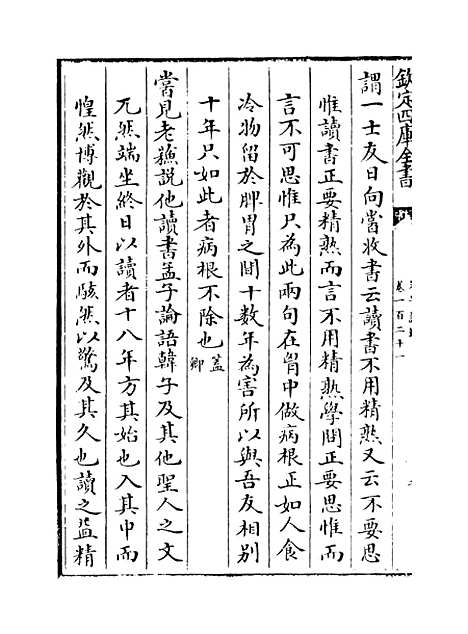 欽定四庫全書
卷一百二十一
謂一士友曰向嘗收書云讀書不用精熟又云不要思
惟讀書正要精熟而言不用精熟學問正要思惟而
言不可思惟只為此兩句在胷中做病根正如人食
冷物留於脾胃之間十數年為害所以與吾友相別
十年只如此者病根不除也蓋卿
嘗見老蘇說他讀書孟子論語韓子及其他聖人之文
兀然端坐終日以讀者十八年方其始也入其中而
惶然博觀於其外而駭然以驚及其久也讀之益精